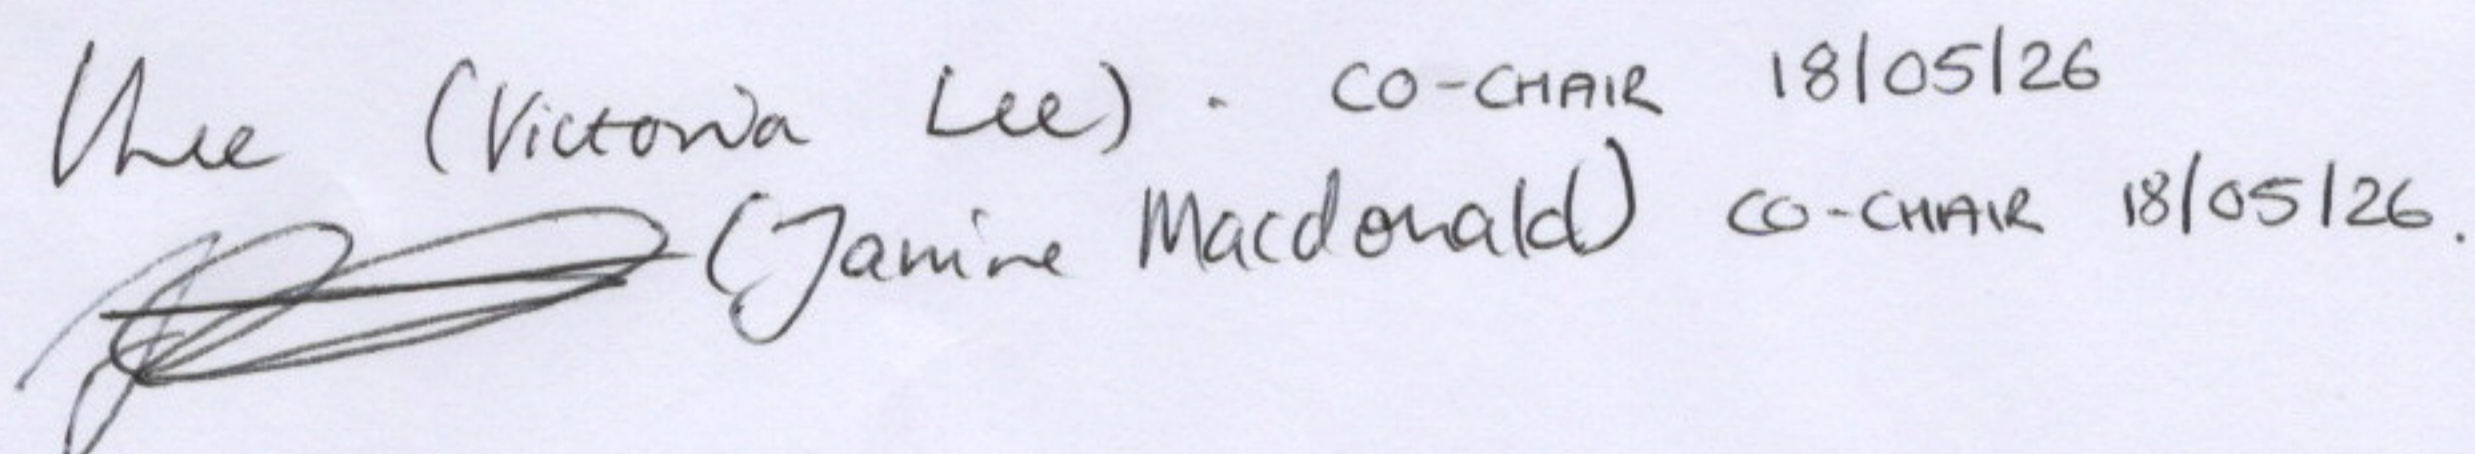 VLee (Victoria Lee). CO-CHAIR 18/05/26
(Janine Macdonald) CO-CHAIR 18/05/26.